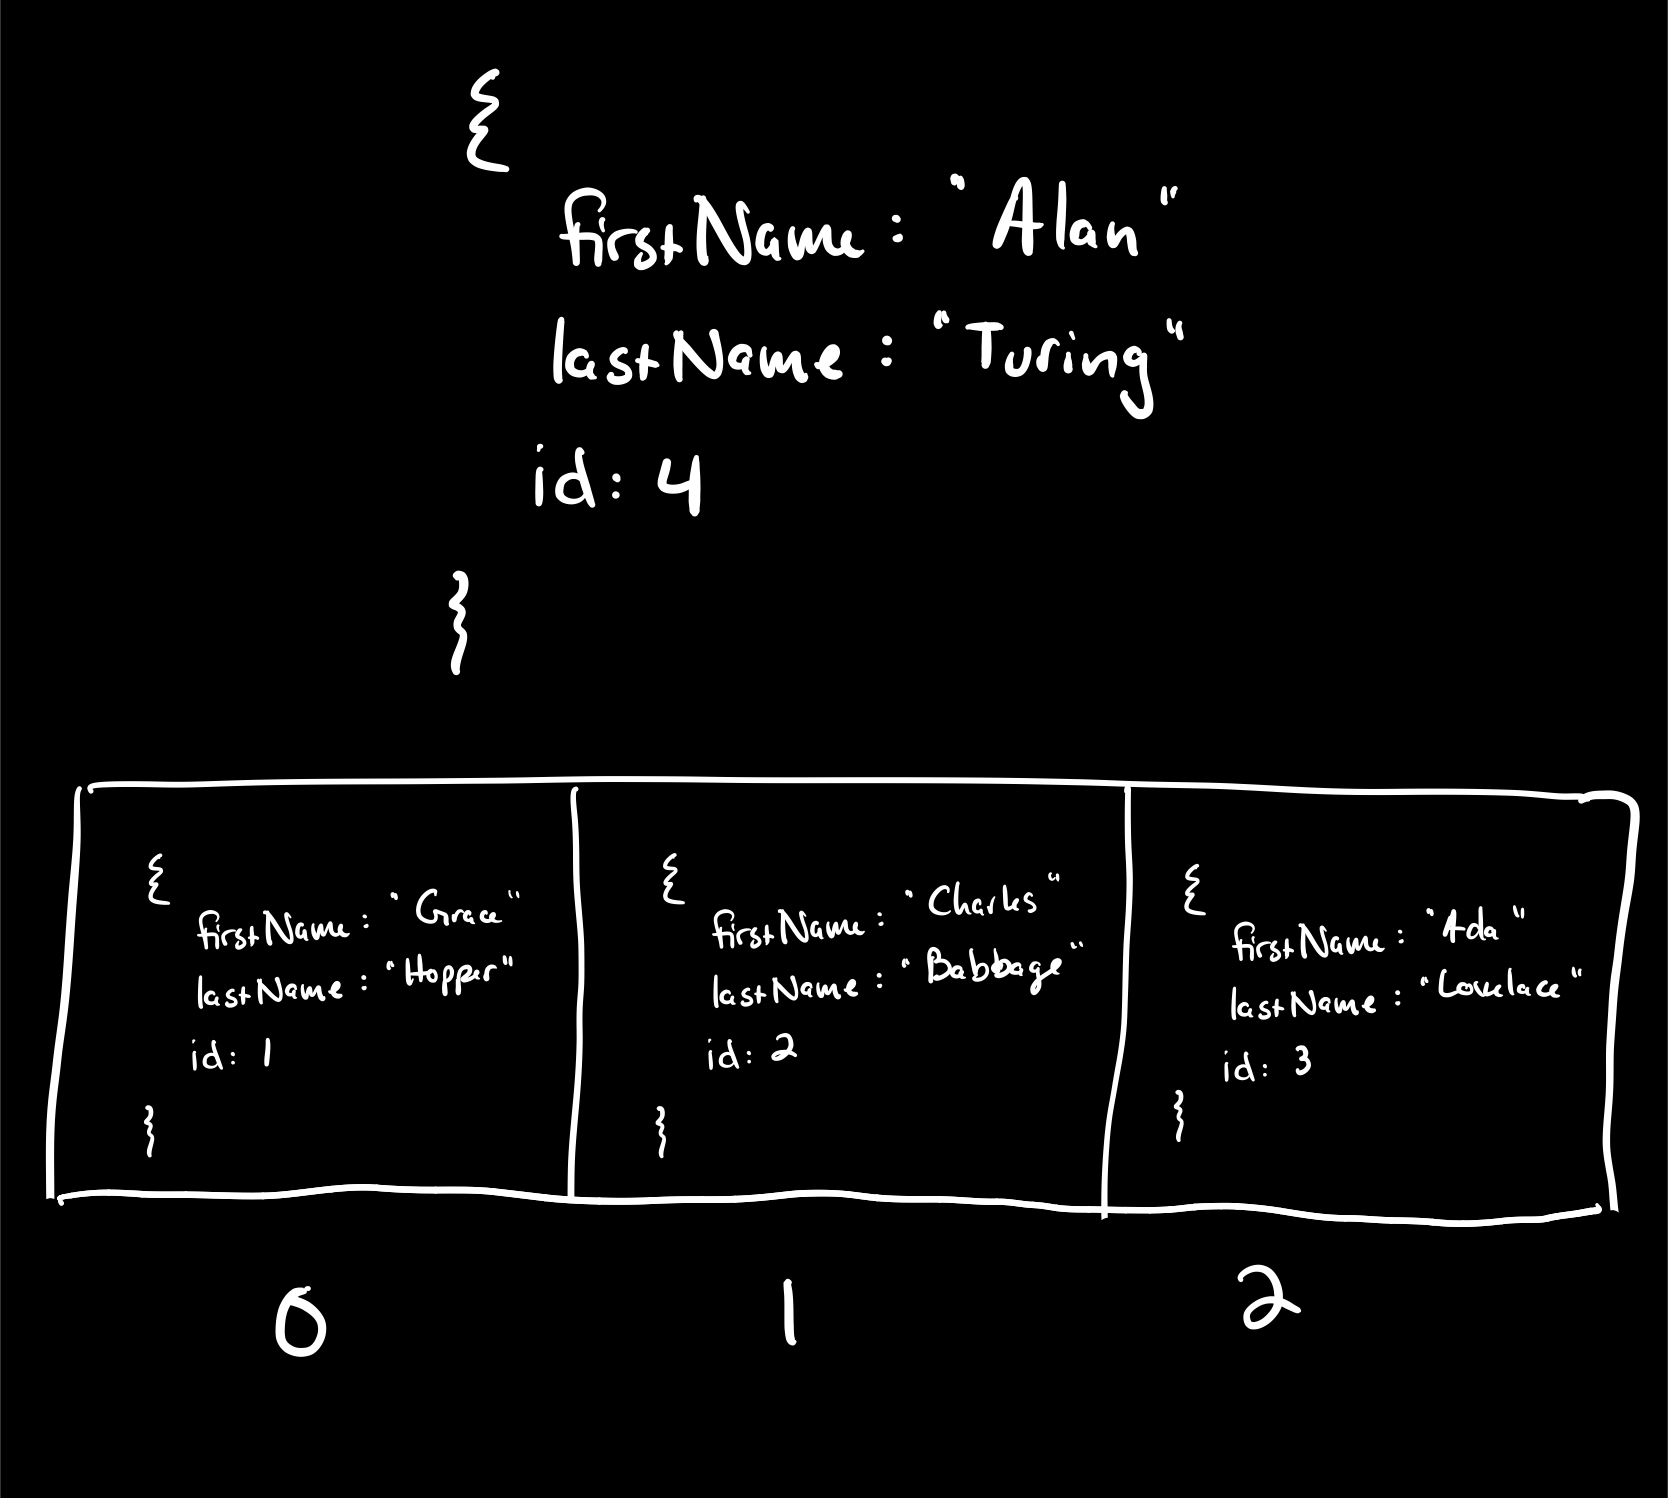 {
firstName: "Alan"
lastName: "Turing"
id: 4
}
{
firstName: "Grace"
lastName: "Hopper"
id: 1
}
{
firstName: "Charles"
lastName: "Babbage"
id: 2
}
{
firstName: "Ada"
lastName: "Lovelace"
id: 3
}
0 1 2